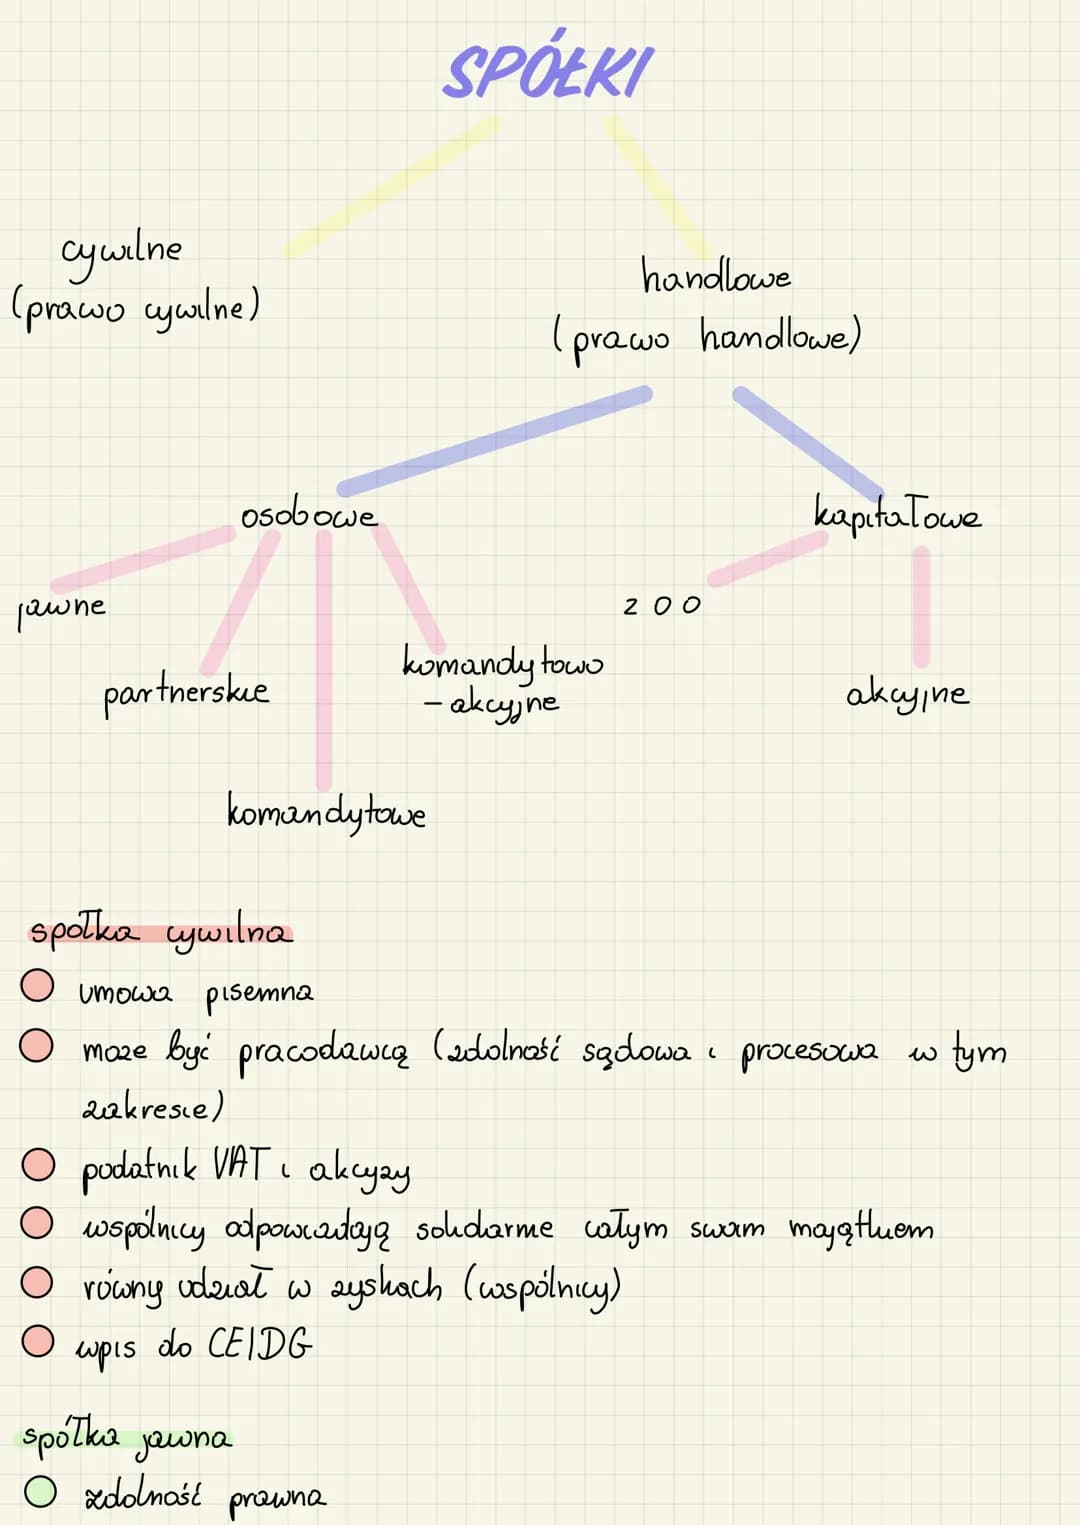 SPÓŁKI
cywilne
(prawo cywilne)
handlowe
(prawo handlowe)
osobowe
kapitałowe
jawne
zoo
partnerskie
komandytowo
- akcyjne
akcyjne
komandytowe
spółka cywilna
umowa pisemna
może być pracodawcą (zdolność sądowa i procesowa w tym
zakresie)
podatnik VAT i akcyzy
wspólnicy odpowiadają solidarnie całym swoim majątkiem
równy udział w zyskach (wspólnicy)
wpis do CEIDG
spółka jawna
zdolność prawna